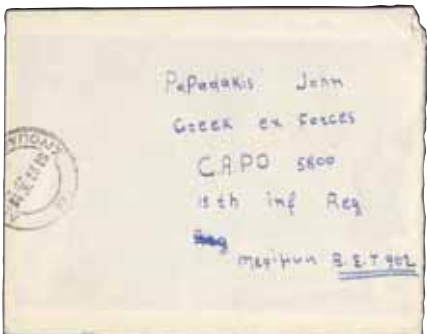 PaPadakis John
Greek ex Forces
C.A.P.O 5800
15th inf Reg
Β.Σ.Τ 902